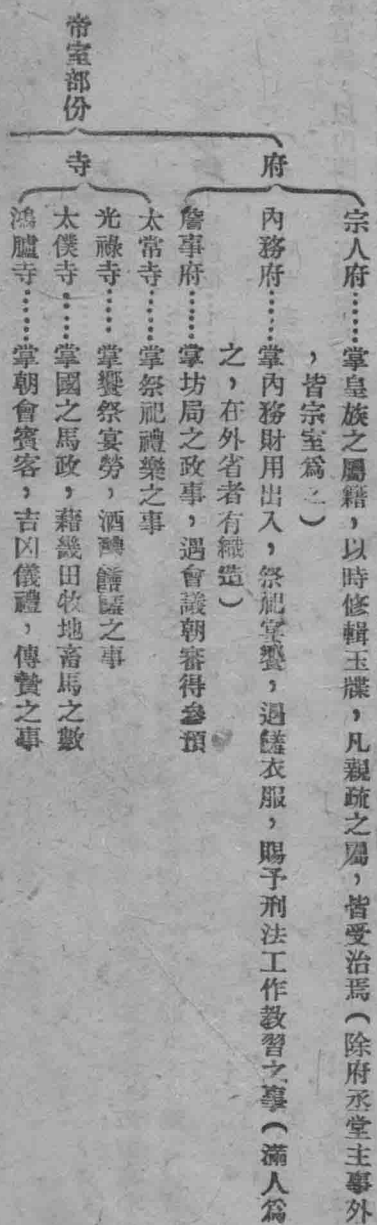 帝室部份
府
宗人府……掌皇族之屬籍，以時修輯玉牒，凡親疏之屬，皆受治焉（除府丞堂主事外
，皆宗室爲之）
內務府……掌內務財用出入，祭祀宴饗，過饈衣服，賜予刑法工作教習之事（滿人爲
之，在外省者有織造）
詹事府……掌坊局之政事，遇會議朝審得參預
寺
太常寺……掌祭祀禮樂之事
光祿寺……掌饗祭宴勞，酒醴饈之事
太僕寺……掌國之馬政，藉畿田牧地畜馬之數
鴻臚寺……掌朝會賓客，吉凶儀禮，傳贊之事